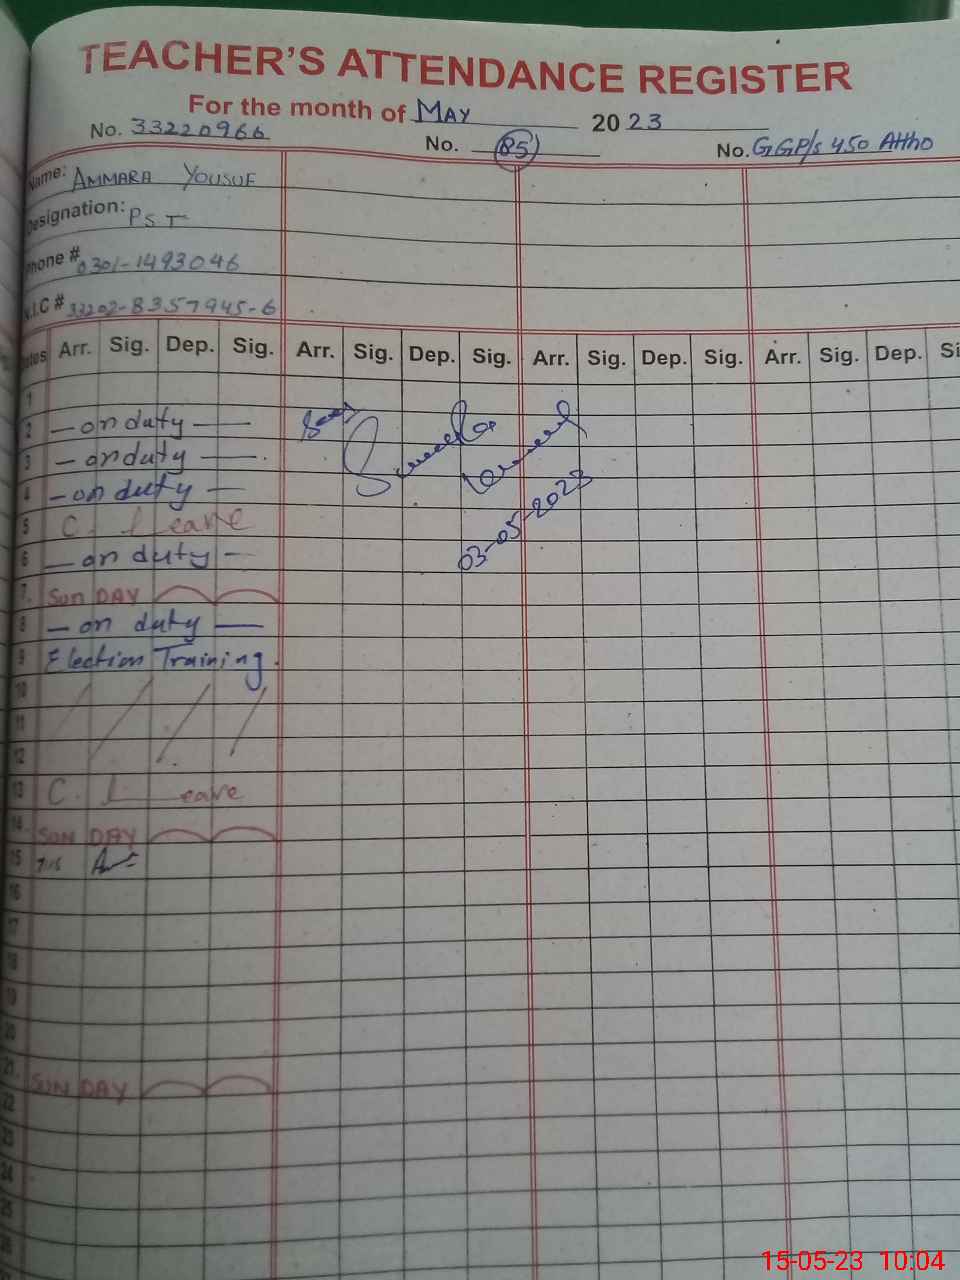 TEACHER'S ATTENDANCE REGISTER
For the month of MAY 2023
No. 33220966 No. 85 No. GGP/s 450 Attho
Name: AMMARA YOUSUF
Designation: PST
Phone # 0301-1493046
N.I.C # 33202-8357945-6
Dates Arr. Sig. Dep. Sig. Arr. Sig. Dep. Sig. Arr. Sig. Dep. Sig. Arr. Sig. Dep. Si
1
2 - on duty -
3 - on duty -
4 - on duty -
5 C. Leave
03-05-2023
6 - on duty -
7. SUN DAY
8 - on duty -
9 Election Training.
10 / / / /
11
12
13 C. Leave
14. SUN DAY
15 7:15
16
17
18
19
20
21. SUN DAY
22
23
24
25
26
15-05-23 10:04